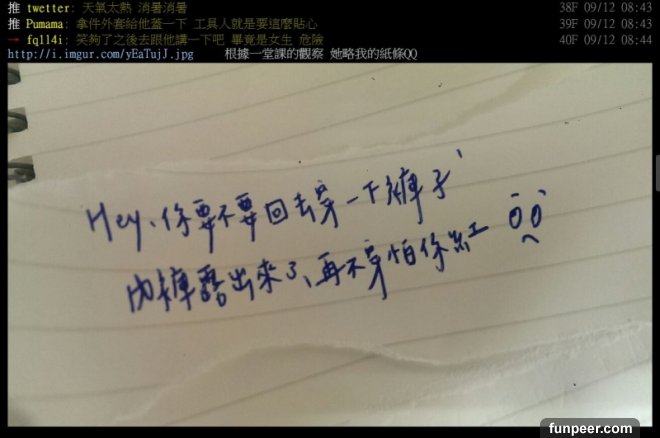 推 twetter: 天氣太熱 消暑消暑 38F 09/12 08:43
推 Pumama: 拿件外套給他蓋一下 工具人就是要這麼貼心 39F 09/12 08:43
→ fql14i: 笑夠了之後去跟他講一下吧 畢竟是女生 危險 40F 09/12 08:44
http://i.imgur.com/yEaTujJ.jpg 根據一堂課的觀察 她略我的紙條QQ
Hey、你要不要回去穿一下褲子
內褲露出來了、再不穿怕你紅
funpeer.com